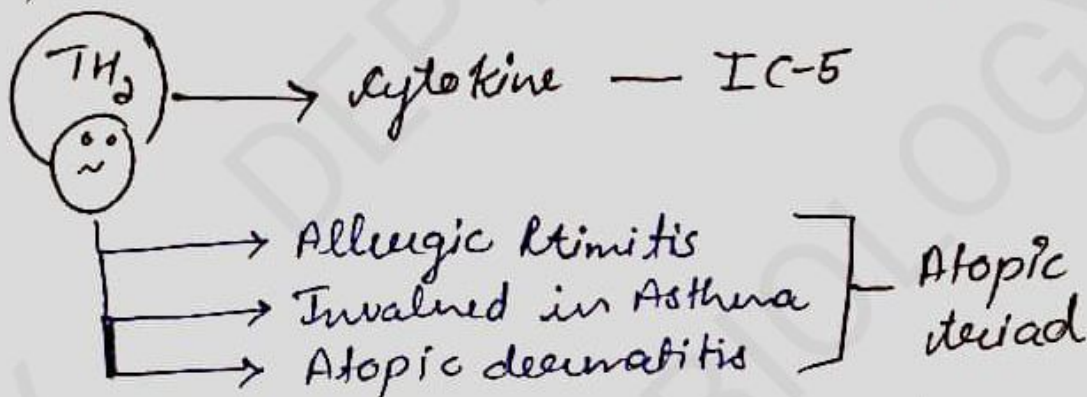 TH2 → cytokine — IC-5
→ Allergic Rtimitis
→ Involued in Asthma
→ Atopic dermatitis
Atopic
triad